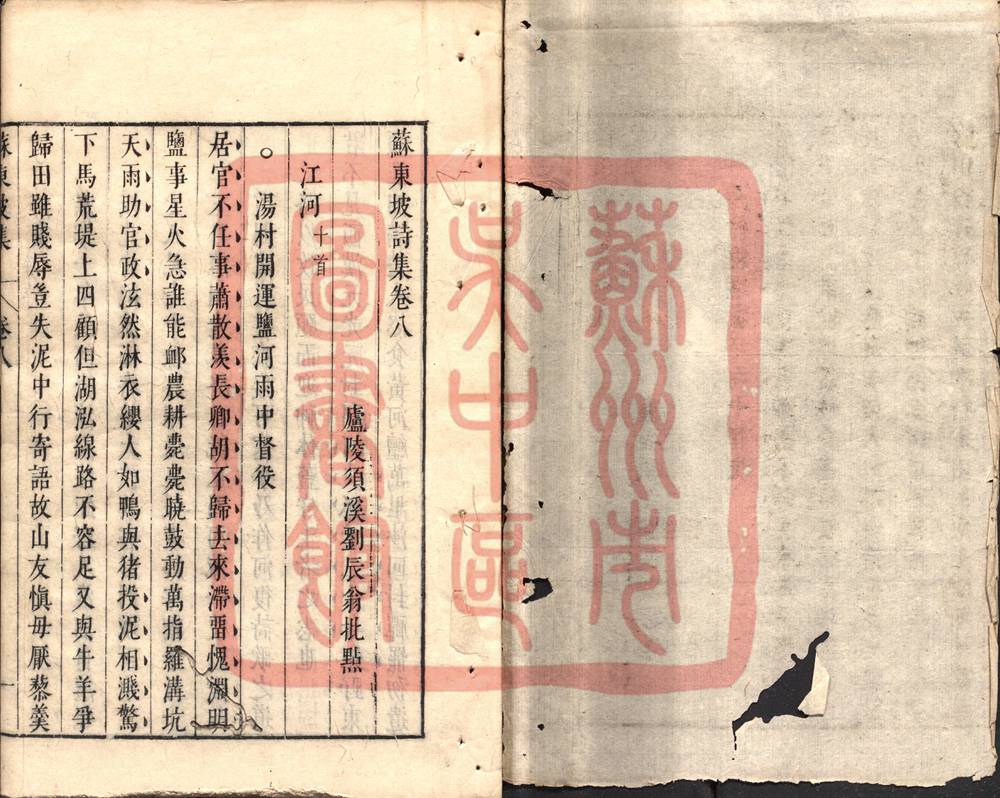 蘇東坡詩集卷八
廬陵須溪劉辰翁批點
江河 十首
○湯村開運鹽河雨中督役
居官不任事蕭散羨長卿胡不歸去來滯畱愧淵明
鹽事星火急誰能䘏農耕薨薨曉鼓動萬指羅溝坑
天雨助官政泫然淋衣纓人如鴨與猪投泥相濺驚
下馬荒堤上四顧但湖泓線路不容足又與牛羊爭
歸田雖賤辱豈失泥中行寄語故山友慎毋厭藜羹
蘇東坡集 卷八 一
蘇州市
吳中區
圖書館